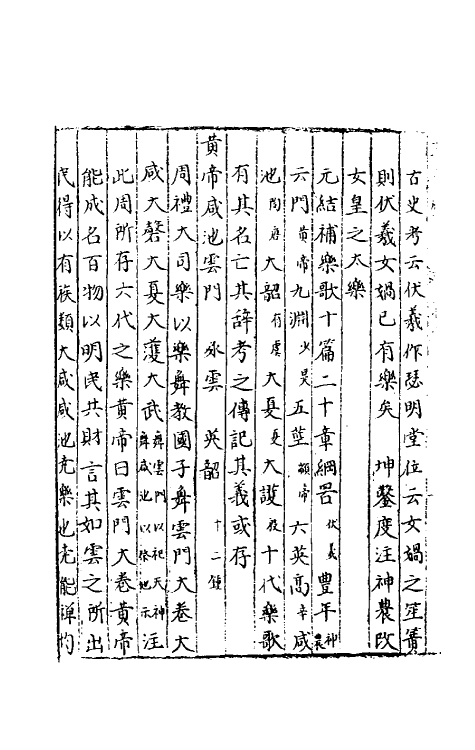 古史考云伏羲作瑟明堂位云女媧之笙簧
則伏羲女媧已有樂矣　坤鑿度注神農改
女皇之大樂
元結補樂歌十篇二十章網罟伏羲豐年神農
云門黄帝九淵少昊五莖顓帝六英高辛咸
池陶唐大韶有虞大夏夏大護殷十代樂歌
有其名亡其辭考之傳記其義或存
黄帝咸池雲門　承雲　英韶　十二鍾
周禮大司樂以樂舞教國子舞雲門大卷大
咸大磬大夏大濩大武舞雲門以祀天神舞咸池以祭地示注
此周所存六代之樂黄帝曰雲門大卷黄帝
能成名百物以明民共財言其如雲之所出
民得以有族類大咸咸池尭樂也尭能殫均